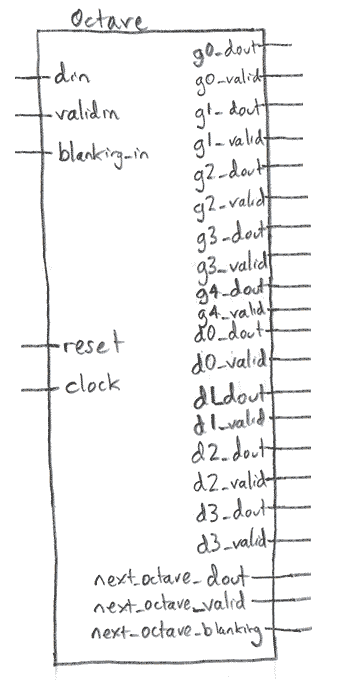 Octave
din
validin
blanking_in
reset
clock
g0_dout
g0_valid
g1_dout
g1_valid
g2_dout
g2_valid
g3_dout
g3_valid
g4_dout
g4_valid
d0_dout
d0_valid
d1_dout
d1_valid
d2_dout
d2_valid
d3_dout
d3_valid
next_octave_dout
next_octave_valid
next_octave_blanking